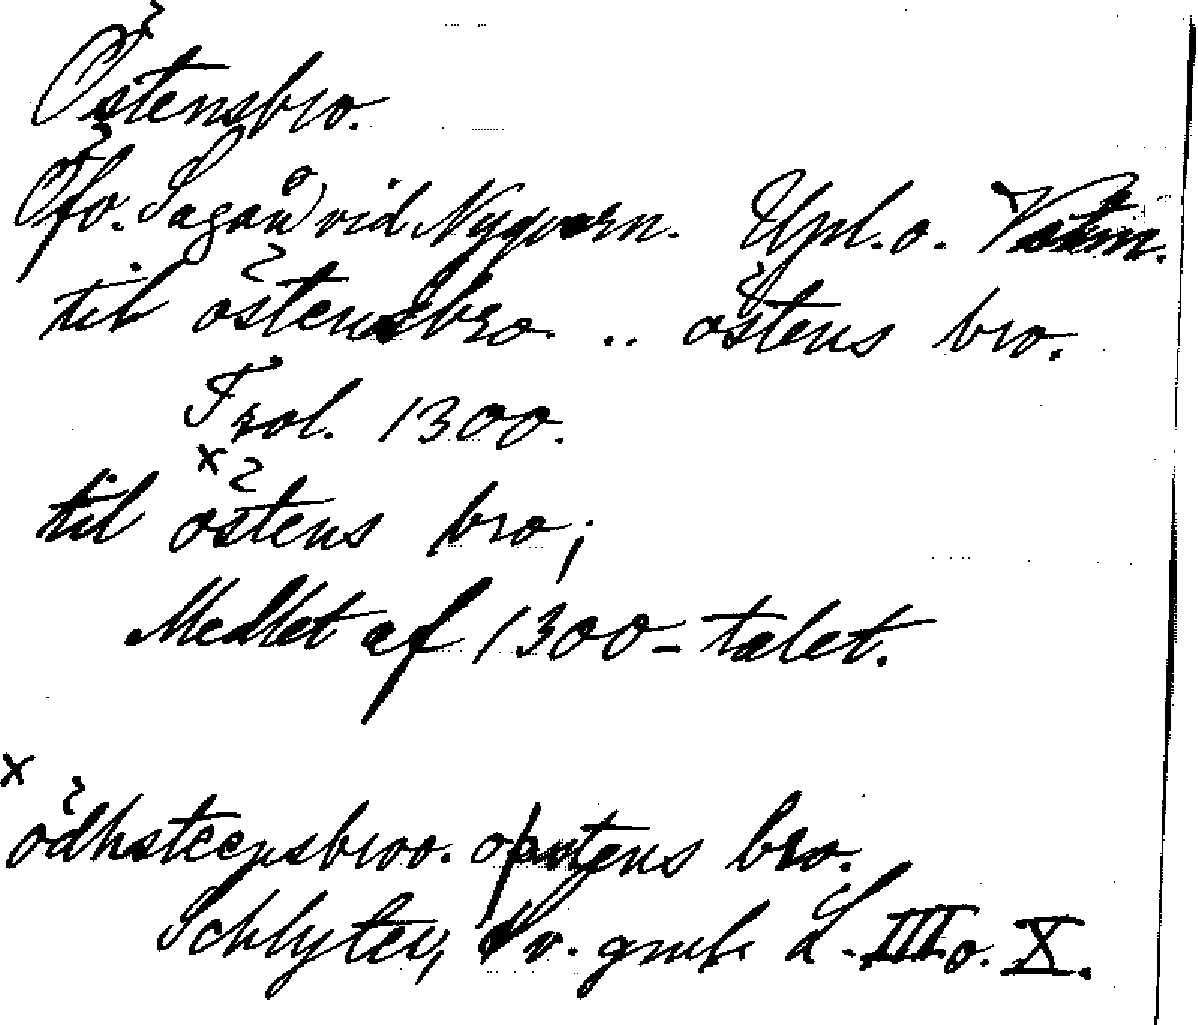 Östensbro.
Öfv. Sagån vid Nyqvarn. Upl. o. Vstm.
til östensbro .. östens bro.
Frol. 1300.
x
til östens bro;
Medlet af 1300-talet.
x
ödhsteensbroo. östens bro.
Schlyter, Sv. gml. L. III o. X.